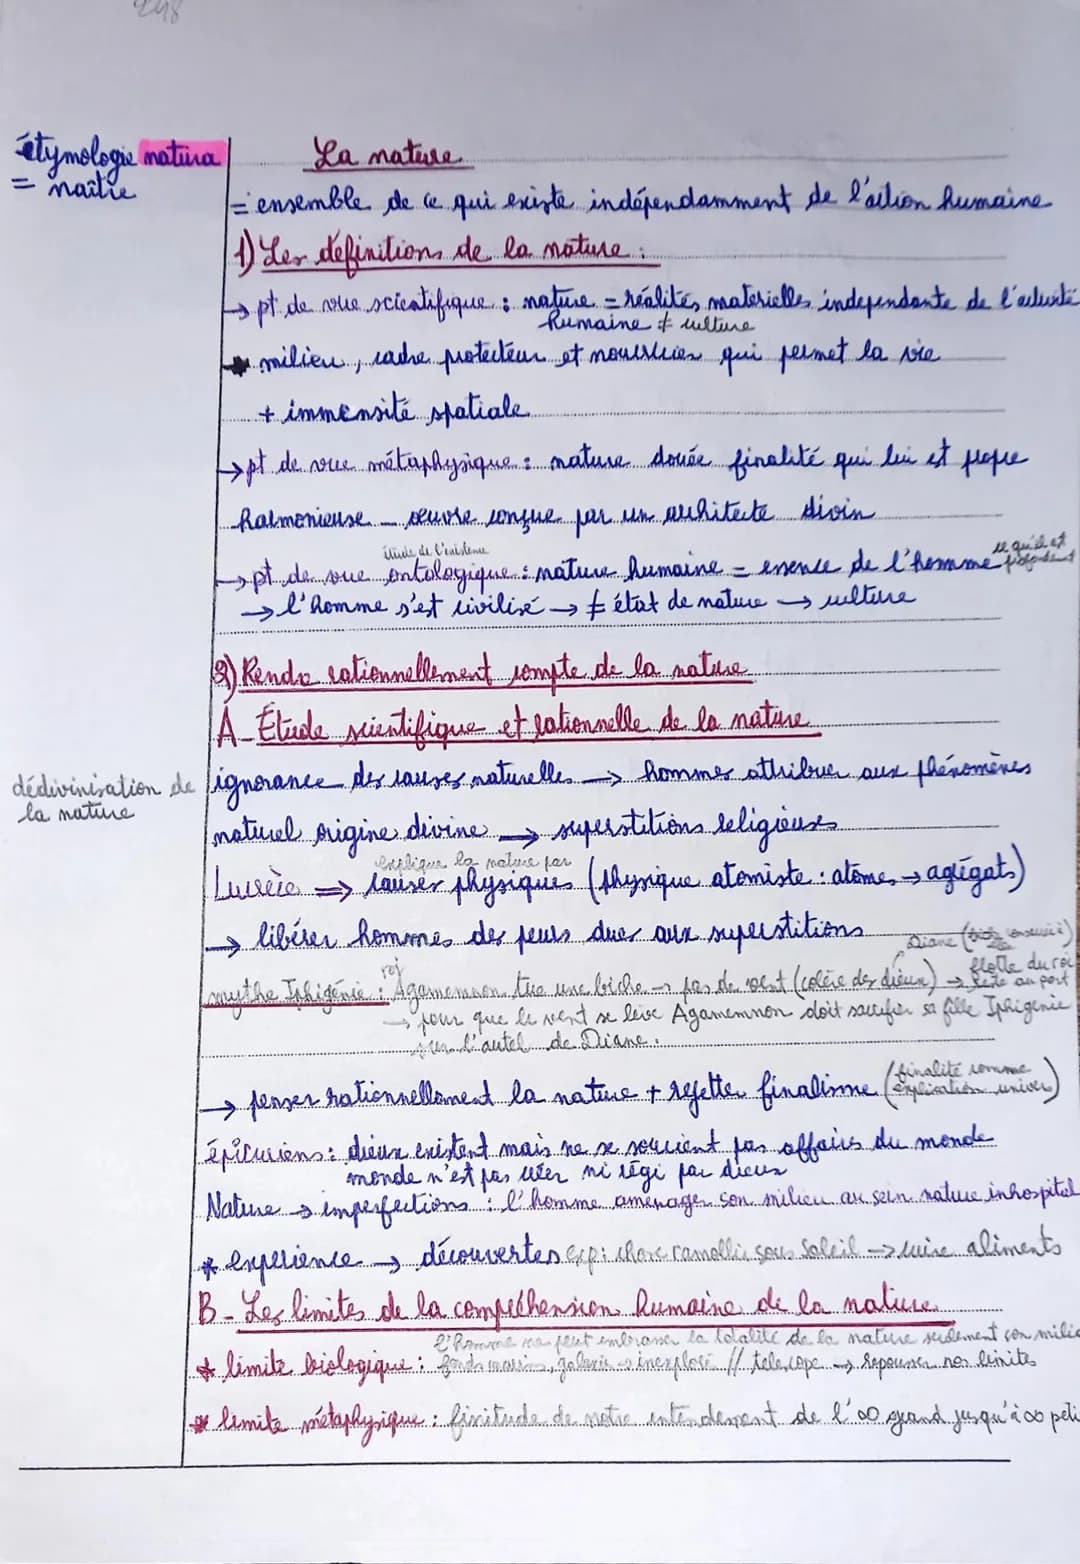 248
étymologie natura
= naître
La nature
= ensemble de ce qui existe indépendamment de l'action humaine
1) Les définitions de la nature :
→ pt de vue scientifique : nature = réalités matérielles indépendante de l'activité
humaine ≠ culture
* milieu, cadre protecteur et nourricier qui permet la vie
+ immensité spatiale
→ pt de vue métaphysique : nature douée finalité qui lui est propre
harmonieuse _ œuvre conçue par un architecte divin
étude de l'existence
ce qu'il est
→ pt de vue ontologique : nature humaine = essence de l'homme profondément
→ l'homme s'est civilisé → ≠ état de nature → culture
2) Rendre rationnellement compte de la nature
A - Étude scientifique et rationnelle de la nature
dédivinisation de
la nature
ignorance des causes naturelles → hommes attribuer aux phénomènes
naturel origine divine → superstitions religieuses
explique la nature par
Lucrèce ⇒ causes physiques (physique atomiste : atomes → agrégats)
→ libérer hommes des peurs dues aux superstitions
Diane (biche consacrée)
roi
flotte du roi
mythe Iphigénie : Agamemnon tue une biche → pas de vent (colère des dieux) → reste au port
→ pour que le vent se lève Agamemnon doit sacrifier sa fille Iphigénie
sur l'autel de Diane.
→ penser rationnellement la nature + rejette finalisme (finalité comme
explication univers)
épicuriens : dieux existent mais ne se soucient pas affaires du monde
monde n'est pas créer ni régi par dieux
Nature → imperfections : l'homme aménager son milieu au sein nature inhospital
* expérience → découvertes exp : chose ramollie sous Soleil → cuire aliments
B - Les limites de la compréhension humaine de la nature
l'homme ne peut embrasser la totalité de la nature seulement son milie
* limite biologique : fonds marins, galaxie → inexploré // télescope → repousser nos limites
* limite métaphysique : finitude de notre entendement de l'∞ grand jusqu'à ∞ peti